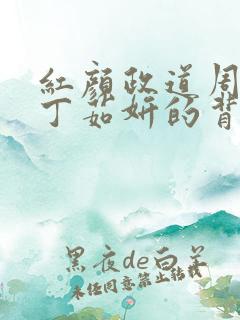 紅顏政道周
丁茹妍的背
黑夜de白羊
未经同意禁止转载